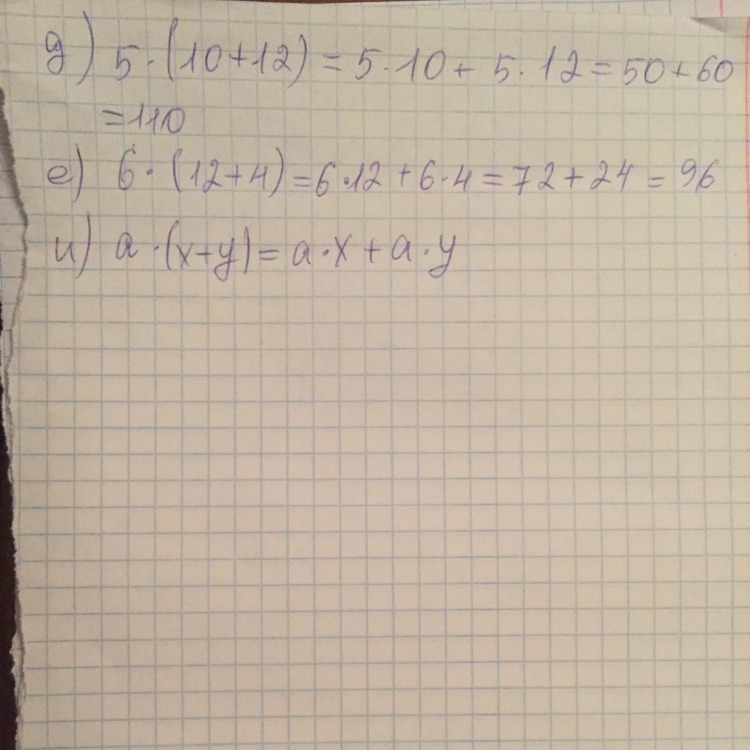 д) 5·(10+12)=5·10+5·12=50+60
=110
е) 6·(12+4)=6·12+6·4=72+24=96
и) a·(x+y)=a·x+a·y